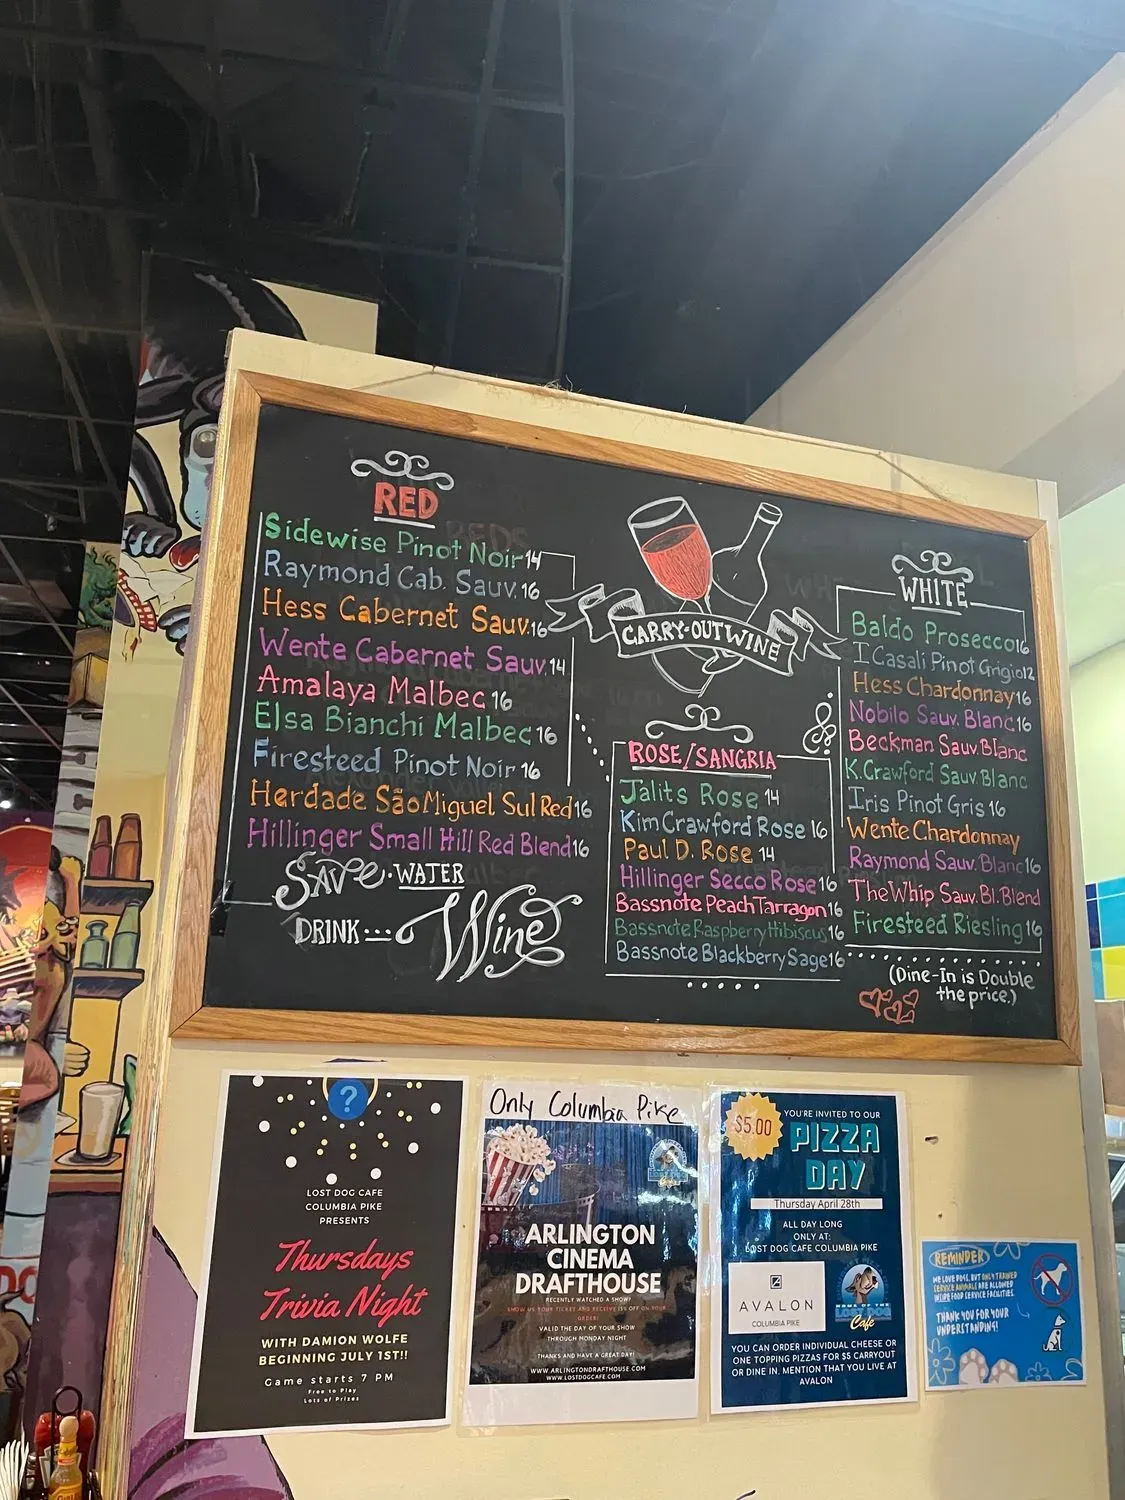 RED
Sidewise Pinot Noir 14
Raymond Cab. Sauv. 16
Hess Cabernet Sauv. 16
Wente Cabernet Sauv. 14
Amalaya Malbec 16
Elsa Bianchi Malbec 16
Firesteed Pinot Noir 16
Herdade São Miguel Sul Red 16
Hillinger Small Hill Red Blend 16
SAVE · WATER
DRINK ... Wine
CARRY-OUT WINE
ROSE/SANGRIA
Jalits Rose 14
Kim Crawford Rose 16
Paul D. Rose 14
Hillinger Secco Rose 16
Bassnote Peach Tarragon 16
Bassnote Raspberry Hibiscus 16
Bassnote Blackberry Sage 16
WHITE
Baldo Prosecco 16
I Casali Pinot Grigio 12
Hess Chardonnay 16
Nobilo Sauv. Blanc 16
Beckman Sauv. Blanc
K. Crawford Sauv. Blanc
Iris Pinot Gris 16
Wente Chardonnay
Raymond Sauv. Blanc 16
The Whip Sauv. Bl. Blend
Firesteed Riesling 16
(Dine-In is Double
the price.)
?
LOST DOG CAFE
COLUMBIA PIKE
PRESENTS
Thursdays
Trivia Night
WITH DAMION WOLFE
BEGINNING JULY 1ST!!
Game starts 7 PM
Free to Play
Lots of Prizes
Only Columbia Pike
ARLINGTON
CINEMA
DRAFTHOUSE
RECENTLY WATCHED A SHOW?
SHOW US YOUR TICKET AND RECEIVE 15% OFF ON YOUR
ORDER!
VALID THE DAY OF YOUR SHOW
THROUGH MONDAY NIGHT
THANKS AND HAVE A GREAT DAY!
WWW.ARLINGTONDRAFTHOUSE.COM
WWW.LOSTDOGCAFE.COM
$5.00
YOU'RE INVITED TO OUR
PIZZA
DAY
Thursday April 28th
ALL DAY LONG
ONLY AT:
LOST DOG CAFE COLUMBIA PIKE
AVALON
COLUMBIA PIKE
HOME OF THE
LOST DOG
Cafe
YOU CAN ORDER INDIVIDUAL CHEESE OR
ONE TOPPING PIZZAS FOR $5 CARRYOUT
OR DINE IN. MENTION THAT YOU LIVE AT
AVALON
REMINDER
WE LOVE DOGS, BUT ONLY TRAINED
SERVICE ANIMALS ARE ALLOWED
INSIDE FOOD SERVICE FACILITIES.
THANK YOU FOR YOUR
UNDERSTANDING!